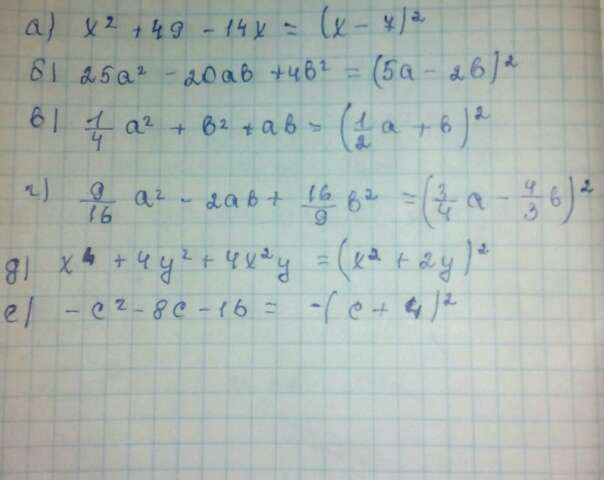 а) x² + 49 - 14x = (x - 7)²
б) 25a² - 20ab + 4b² = (5a - 2b)²
в) 1/4 a² + b² + ab = (1/2 a + b)²
г) 9/16 a² - 2ab + 16/9 b² = (3/4 a - 4/3 b)²
д) x⁴ + 4y² + 4x²y = (x² + 2y)²
е) -c² - 8c - 16 = -(c + 4)²